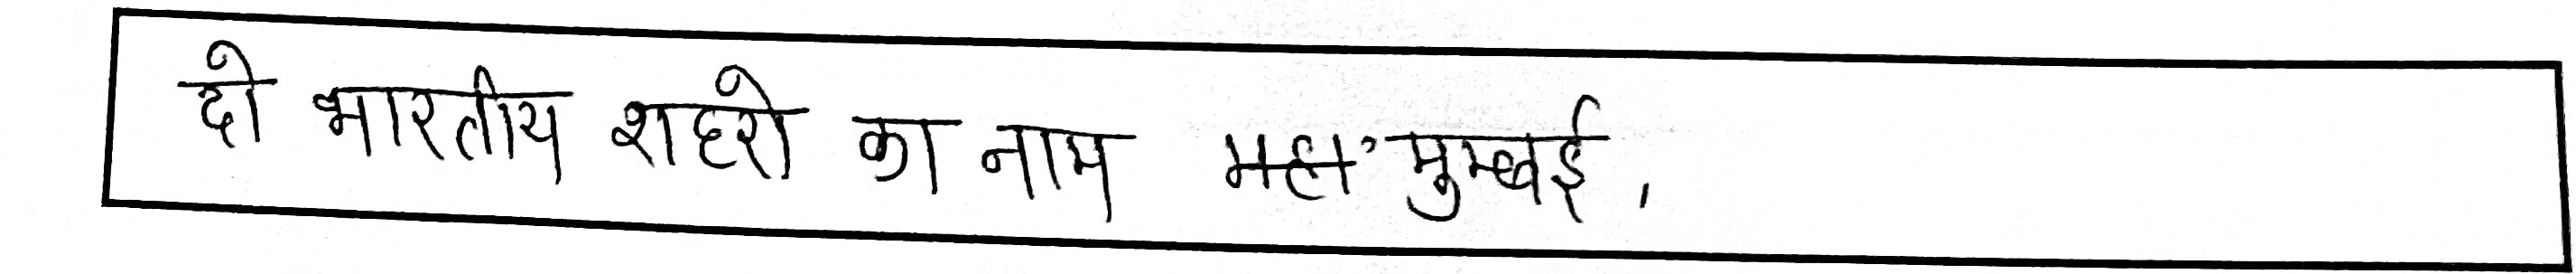 दो भारतीय शहरो का नाम मुम्बई,